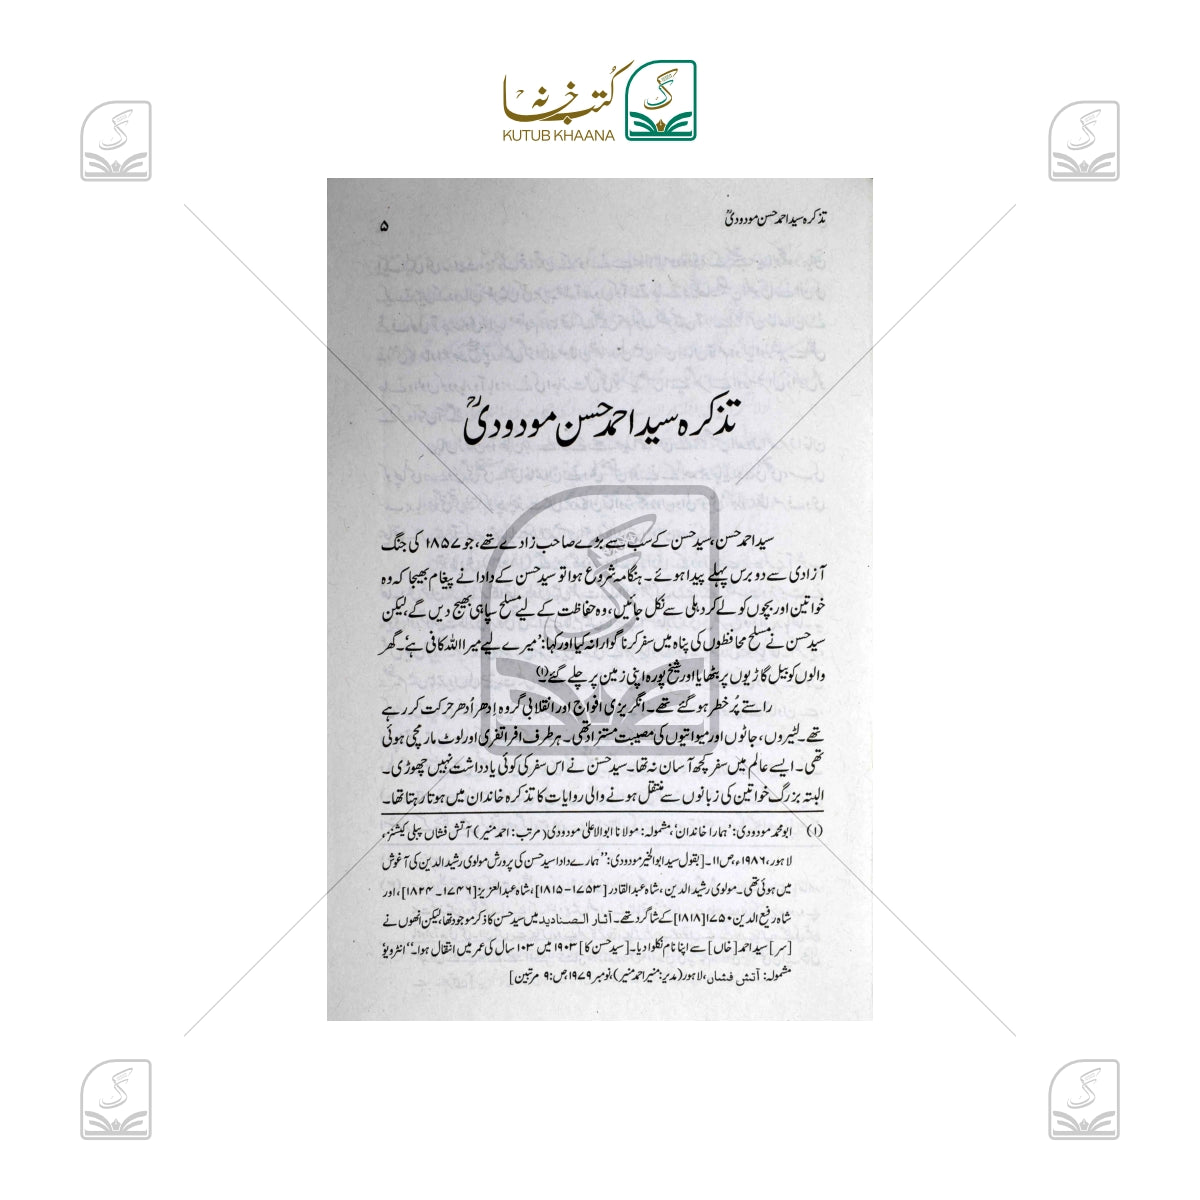 کتب خانہ
KUTUB KHAANA
تذکرہ سید احمد حسن مودودیؒ
۵
تذکرہ سید احمد حسن مودودیؒ
سید احمد حسن، سید حسن کے سب سے بڑے صاحب زادے تھے، جو ۱۸۵۷ کی جنگ
آزادی سے دو برس پہلے پیدا ہوئے۔ ہنگامہ شروع ہوا تو سید حسن کے دادا نے پیغام بھیجا کہ وہ
خواتین اور بچوں کو لے کر دہلی سے نکل جائیں، وہ حفاظت کے لیے مسلح سپاہی بھیج دیں گے، لیکن
سید حسن نے مسلح محافظوں کی پناہ میں سفر کرنا گوارا نہ کیا اور کہا: ’میرے لیے میرا اللہ کافی ہے‘۔ گھر
والوں کو بیل گاڑیوں پر بٹھایا اور شیخ پورہ اپنی زمین پر چلے گئے۔(۱)
راستے پُر خطر ہو گئے تھے۔ انگریزی افواج اور انقلابی گروہ اِدھر اُدھر حرکت کر رہے
تھے۔ لٹیروں، جاٹوں اور میواتیوں کی مصیبت مستزاد تھی۔ ہر طرف افراتفری اور لوٹ مار مچی ہوئی
تھی۔ ایسے عالم میں سفر کچھ آسان نہ تھا۔ سید حسن نے اس سفر کی کوئی یادداشت نہیں چھوڑی۔
البتہ بزرگ خواتین کی زبانوں سے منتقل ہونے والی روایات کا تذکرہ خاندان میں ہوتا رہتا تھا۔
(۱) ابو محمد مودودی: ’ہمارا خاندان‘، مشمولہ: مولانا ابوالاعلیٰ مودودی (مرتب: احمد منیر) آتش فشاں پبلی کیشنز،
لاہور، ۱۹۸۶ء، ص ۱۱۔ [بقول سید ابوالخیر مودودی: ’’ہمارے دادا سید حسن کی پرورش مولوی رشید الدین کی آغوش
میں ہوئی تھی۔ مولوی رشید الدین، شاہ عبدالقادر [۱۷۵۳-۱۸۱۵]، شاہ عبدالعزیز [۱۷۴۶-۱۸۲۴]، اور
شاہ رفیع الدین [۱۷۵۰-۱۸۱۸] کے شاگرد تھے۔ آثار الصنادید میں سید حسن کا ذکر موجود تھا، لیکن انھوں نے
[سر] سید احمد [خاں] سے اپنا نام نکلوا دیا۔ [سید حسن کا] ۱۹۰۳ میں ۱۰۳ سال کی عمر میں انتقال ہوا۔‘‘ انٹرویو
مشمولہ: آتش فشاں، لاہور (مدیر: منیر احمد منیر)، نومبر ۱۹۷۹، ص: ۹ مرتبین]